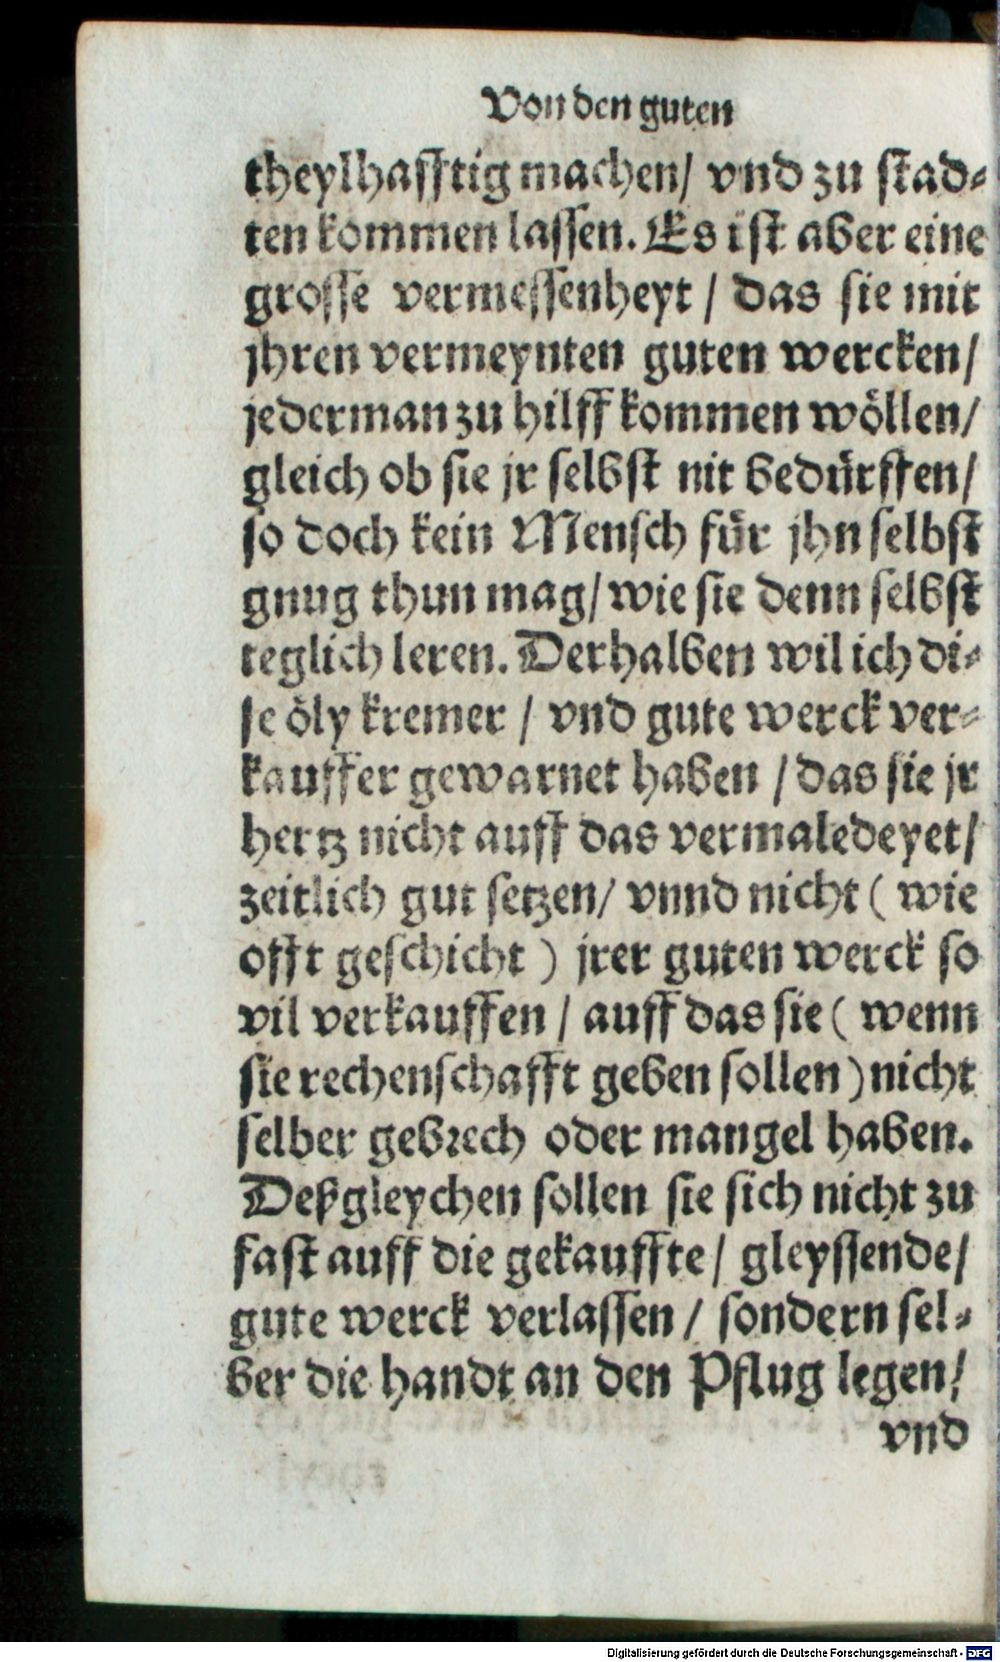 Von den guten
theylhafftig machen/ vnd zu stad-
ten kommen lassen. Es ist aber eine
grosse vermessenheyt / das sie mit
jhren vermeynten guten wercken/
jederman zu hilff kommen wöllen/
gleich ob sie jr selbst nit bedürffen/
so doch kein Mensch für jhn selbst
gnug thun mag/ wie sie denn selbst
teglich leren. Derhalben wil ich di-
se öly kremer / vnd gute werck ver-
kauffer gewarnet haben / das sie jr
hertz nicht auff das vermaledeyet/
zeitlich gut setzen/ vnnd nicht ( wie
offt geschicht ) jrer guten werck so
vil verkauffen / auff das sie ( wenn
sie rechenschafft geben sollen ) nicht
selber gebrech oder mangel haben.
Deßgleychen sollen sie sich nicht zu
fast auff die gekauffte/ gleyssende/
gute werck verlassen / sondern sel-
ber die handt an den Pflug legen/
vnd
Digitalisierung gefördert durch die Deutsche Forschungsgemeinschaft - DFG